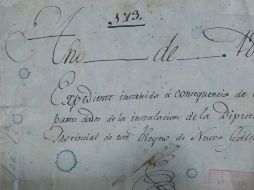 N.13.
Año de 18
Expediente instruido á consequencia de
parte dado de la instalacion de la Diput
Provincial de este Reyno de Nueva Gali